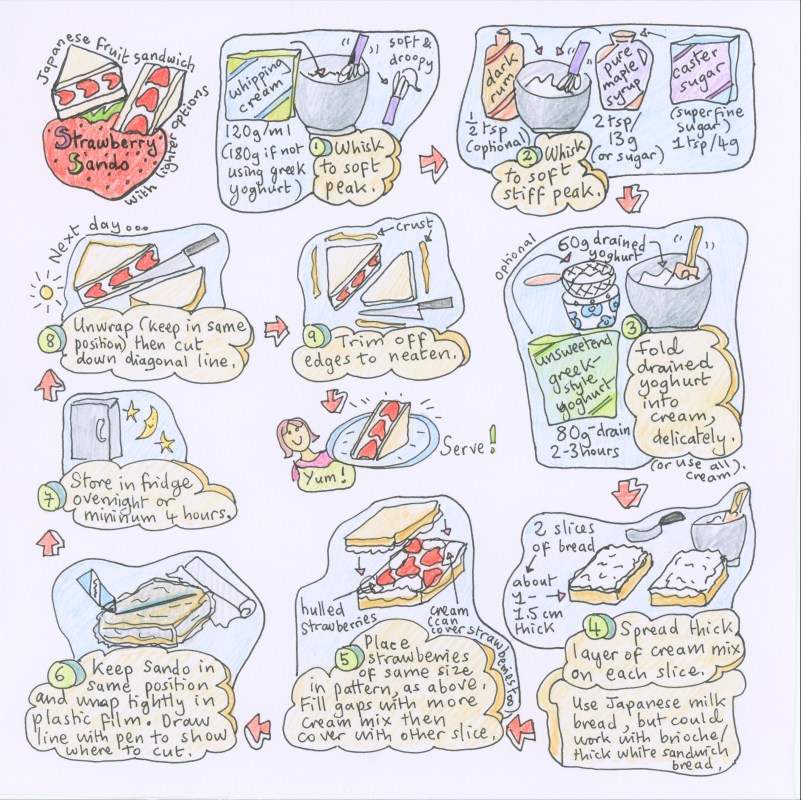 Japanese fruit sandwich
Strawberry
Sando
with lighter options
whipping
cream
soft &
droopy
120g/ml
(180g if not
using greek
yoghurt)
1 Whisk
to soft
peak.
dark
rum
1/2 tsp
(optional)
pure
maple
syrup
2 tsp/
13g
(or sugar)
caster
sugar
(superfine
sugar)
1 tsp/4g
2 Whisk
to soft
stiff peak.
optional
60g drained
yoghurt
unsweetend
greek-
style
yoghurt
80g-drain
2-3 hours
3 Fold
drained
yoghurt
into
cream,
delicately.
(or use all
cream).
2 slices
of bread
about
1-
1.5 cm
thick
4 Spread thick
layer of cream mix
on each slice.
Use Japanese milk
bread, but could
work with brioche/
thick white sandwich
bread.
hulled
strawberries
cream
(can
cover strawberries)
5 Place
strawberries
of same size
in pattern, as above.
Fill gaps with more
cream mix then
cover with other slice.
6 Keep Sando in
same position
and wrap tightly in
plastic film. Draw
line with pen to show
where to cut.
7 Store in fridge
overnight or
mininum 4 hours.
Next day...
8 Unwrap (keep in same
position) then cut
down diagonal line.
crust
9 Trim off
edges to neaten.
Yum!
Serve!